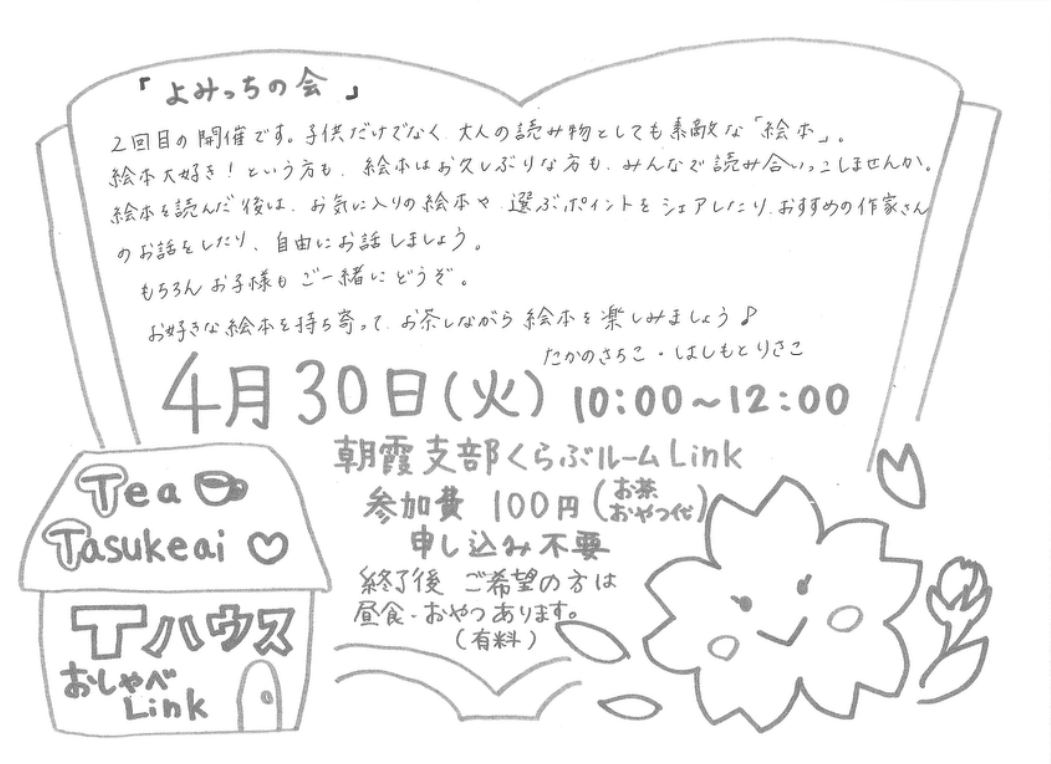 「よみっちの会」
2回目の開催です。子供だけでなく、大人の読み物としても素敵な「絵本」。
絵本大好き!という方も、絵本はお久しぶりな方も、みんなで読み合いっこしませんか。
絵本を読んだ後は、お気に入りの絵本や、選ぶポイントをシェアしたり、おすすめの作家さん
のお話をしたり、自由にお話しましょう。
もちろんお子様もご一緒にどうぞ。
お好きな絵本を持ち寄って、お茶しながら絵本を楽しみましょう♪
たかのさちこ・はしもとりさこ
4月30日(火) 10:00~12:00
朝霞支部くらぶルームLink
参加費 100円(お茶
おやつ代)
申し込み不要
終了後 ご希望の方は
昼食・おやつあります。
(有料)
Tea
Tasukeai ♡
Tハウス
おしゃべ
Link